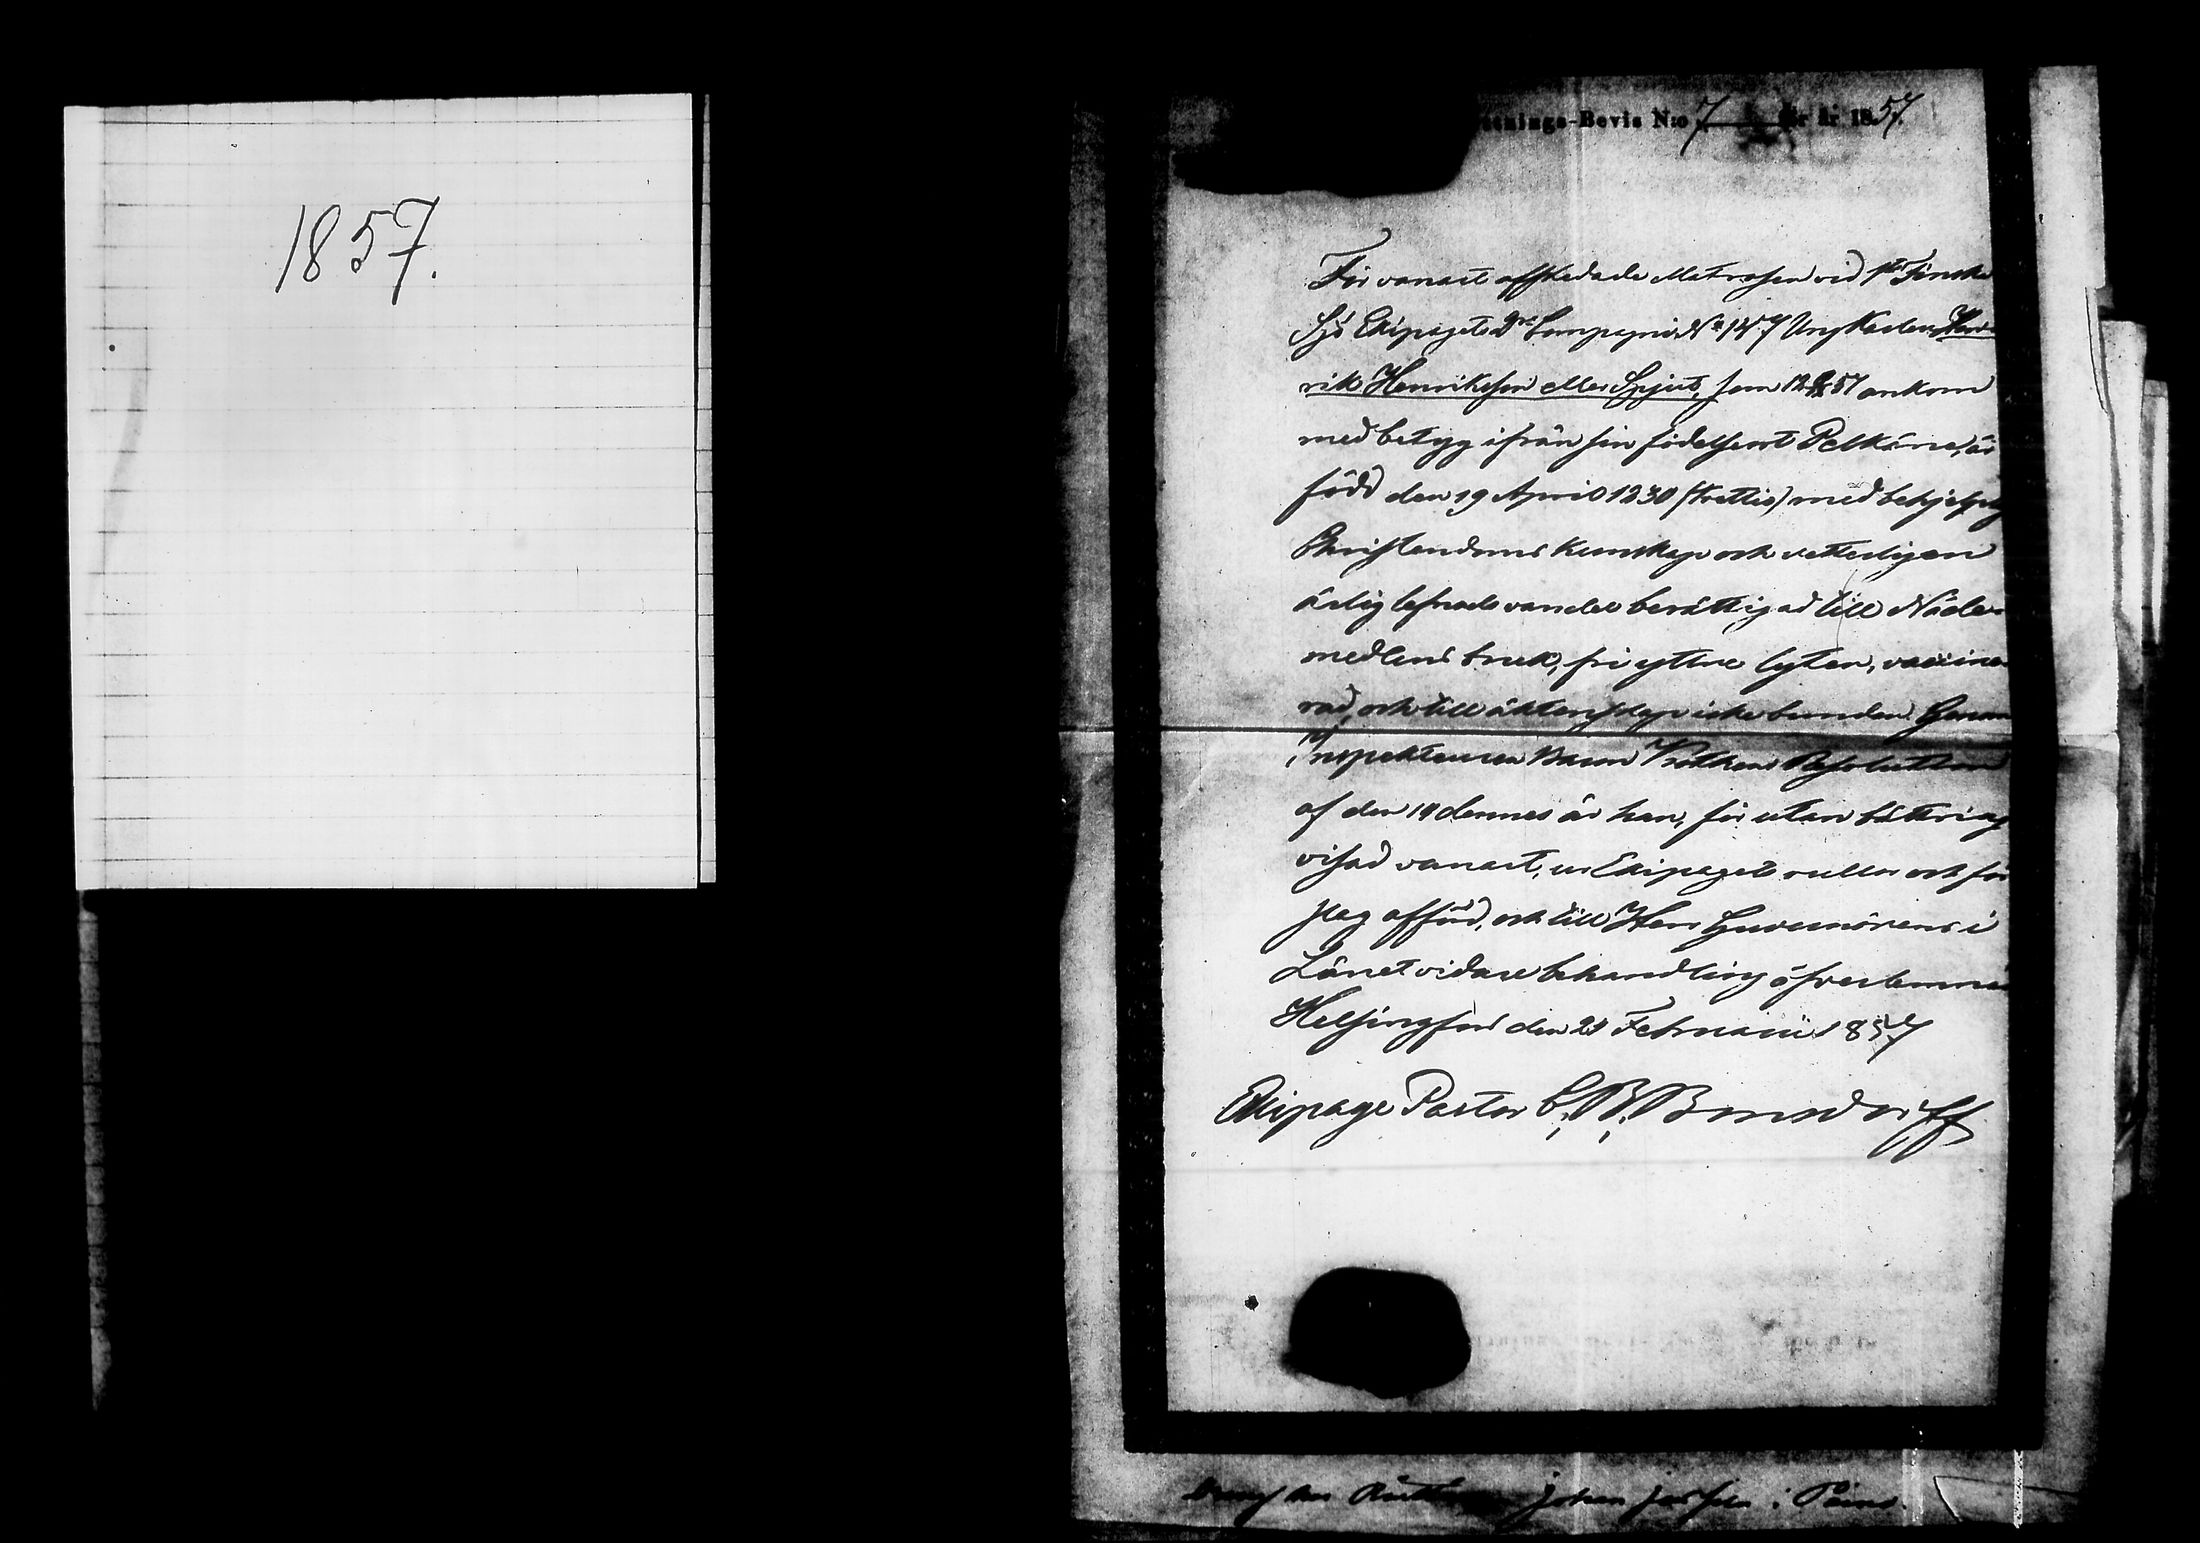 1857.
nings-Bevis N:o 7 för år 1857.
För vanart afskedade Matrosen vid 1sta Finska
Sjö Ekipagets 2dra Compagnie No 147 Ynglingen Hen-
rik Henriksson eller Spjut, som 12 57 ankom
med betyg ifrån sin födelseort Pelkäne, är
född den 19 April 1830 (trettio) med behjelplig
Christendoms kunskap och vetterligen
ärlig lefnads vandel berättigad till Nåde-
medlens bruk, fri yttre lyten, vaccine-
rad, och till äktenskap icke bunden. Genom
Inspekteuren Baron Resolution
af den 19 dennes är han, för utan bättring
visad vanart, ur Ekipagets rullor och för-
slag afförd, och till Herr Guvernörens i
Länet vidare behandling öfverlemnad
Helsingfors den 21 Februarii 1857
Ekipage Pastor C. B.
Johan i